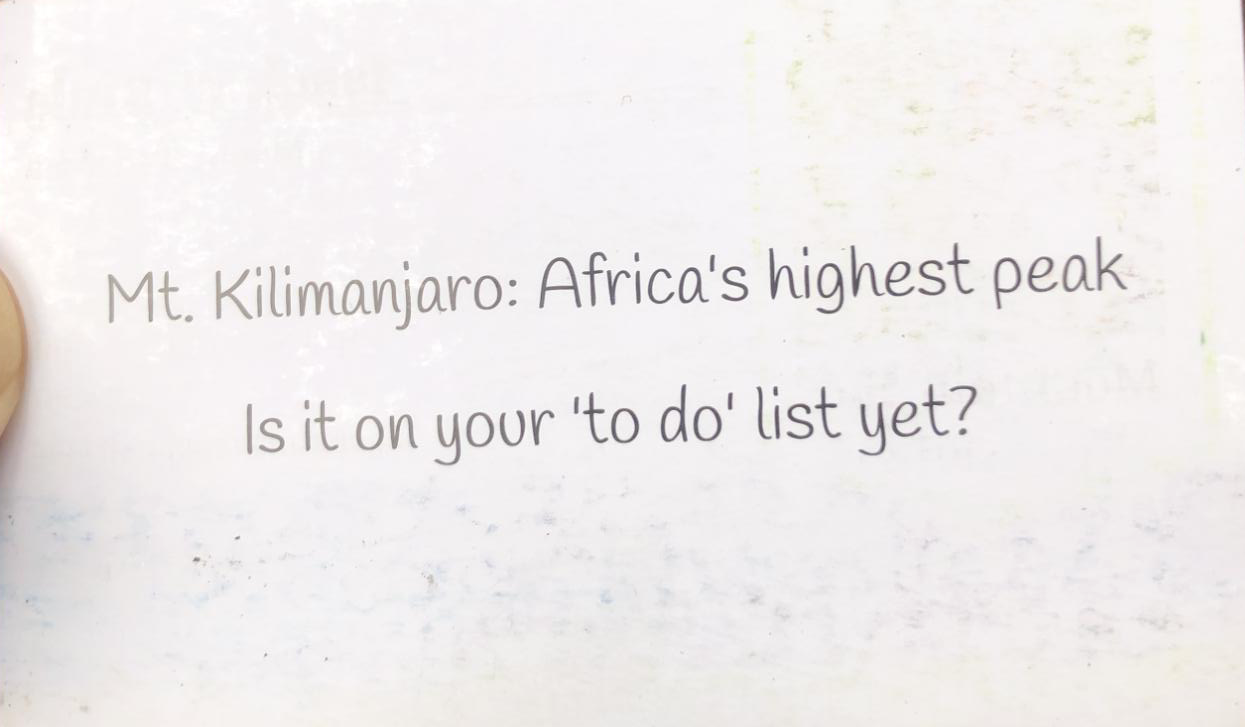 Mt. Kilimanjaro: Africa's highest peak
Is it on your 'to do' list yet?